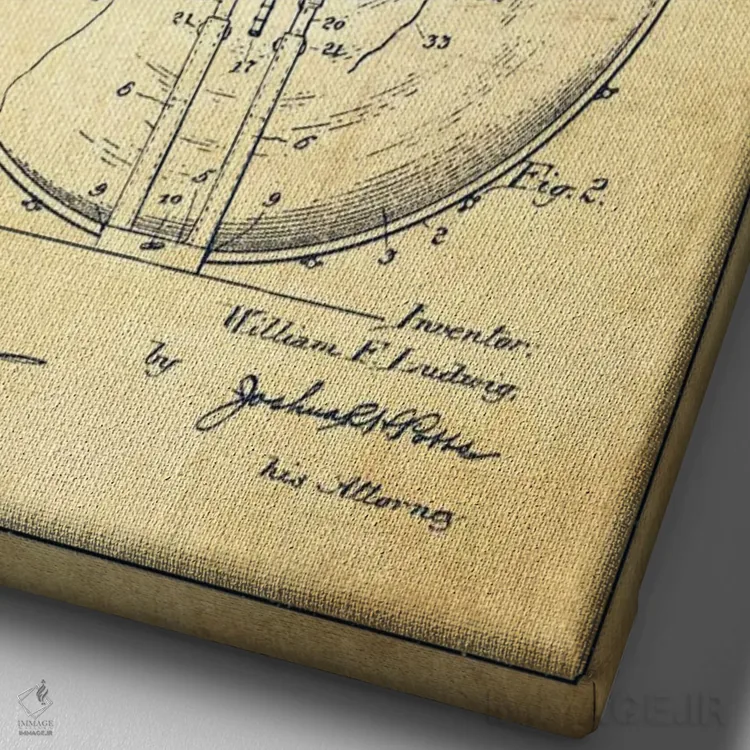 21
20
21
17
33
6
6
9
10
5
9
3
2
Fig. 2.
Inventor:
William F. Ludwig.
by
Joshua R H Potts
his Attorney
IMMAGE
IMMAGE.IR
IMMAGE.IR